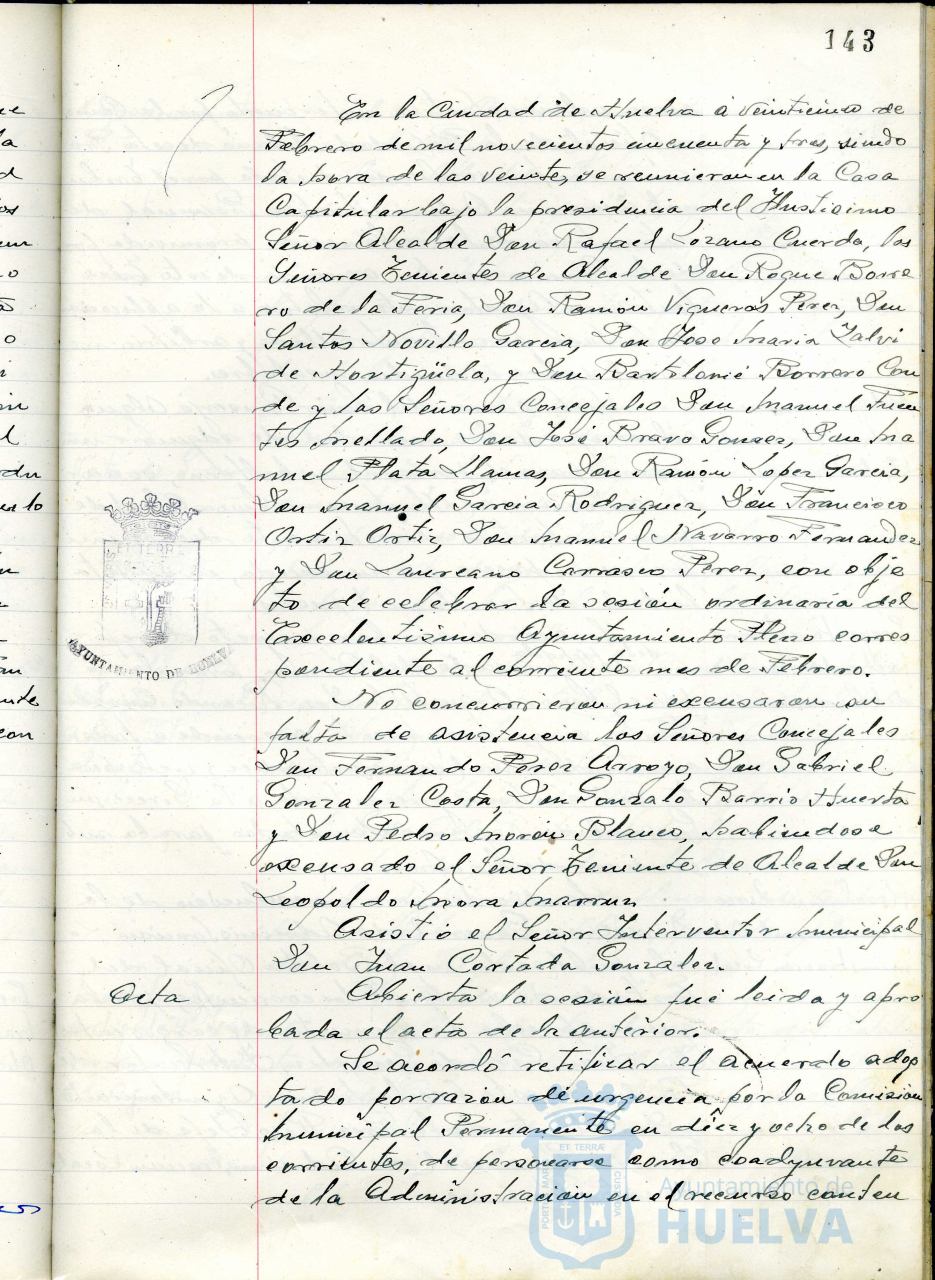 143
En la Ciudad de Huelva a veinticinco de
Febrero de mil novecientos cincuenta y tres, siendo
la hora de las veinte, se reunieron en la Casa
Capitular bajo la presidencia del Ilustisimo
Señor Alcalde Don Rafael Lozano Cuerda, los
Señores Tenientes de Alcalde Don Roque Borre
ro de la Feria, Don Ramón Vigueras Perez, Don
Santos Novillo Garcia, Don Jose Maria Zalvi
de Hortigüela, y Don Bartolomé Borrero Con
de y los Señores Concejales Don Manuel Fuen
tes Mellado, Don José Bravo Gomez, Don Ma
nuel Plata Llamas, Don Ramón Lopez Garcia,
Don Manuel Garcia Rodriguez, Don Francisco
Ortiz Ortiz, Don Manuel Navarro Fernandez
y Don Laureano Carrasco Perez, con obje
to de celebrar la sesión ordinaria del
Excelentisimo Ayuntamiento Pleno corres
pondiente al corriente mes de Febrero.
No concurrieron ni excusaron su
falta de asistencia los Señores Concejales
Don Fernando Perez Arroyo, Don Gabriel
Gonzalez Costa, Don Gonzalo Barrio Huerta
y Don Pedro Morón Blanco, habiendose
excusado el Señor Teniente de Alcalde Don
Leopoldo Mora Marruz
Asistio el Señor Interventor Municipal
Don Juan Cortada Gonzalez.
Acta
Abierta la sesión fué leida y apro
bada el acta de la anterior.
Se acordó retificar el acuerdo adop
tado por razon de urgencia por la Comisión
Municipal Permanente en diez y ocho de los
corrientes, de personarse como coadyuvante
de la Administracion en el recurso conten
ET TERRÆ
AYUNTAMIENTO DE HUELVA
ET TERRÆ
PORTUS MARIS
CUSTODIA
Ayuntamiento de
HUELVA